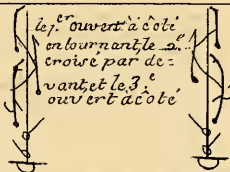 le 1.er ouvert à côté
en tournant, le 2.e
croisé par de=
vant, et le 3e
ouvert à côté